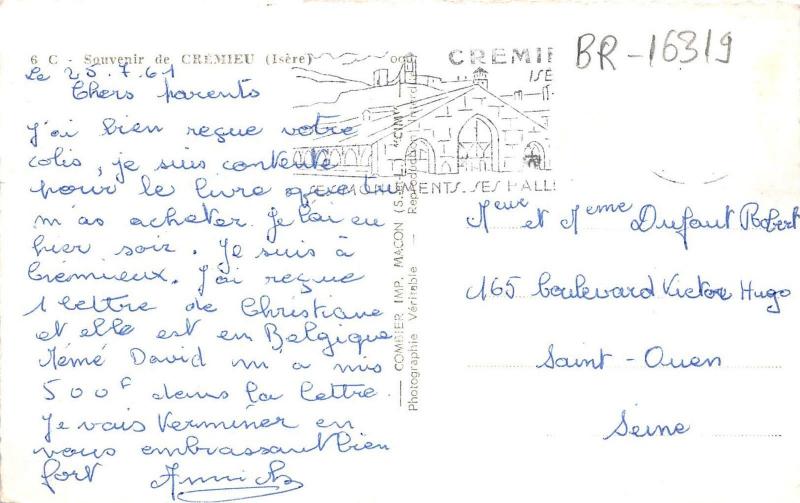 6 C - Souvenir de CRÉMIEU (Isère)
Le 25.7.61
Chers parents
J'ai bien reçue votre
colis, je suis contente
pour le livre que tu
m'as acheter. Je l'ai eu
hier soir. Je suis à
Crémieux. J'ai reçue
1 lettre de Christiane
et elle est en Belgique
Mémé David m'a mis
500F dans la lettre.
Je vais terminer en
vous embrassant bien
fort
COMBIER IMP. MACON (S.-&-L.) "CIM"
Photographie Véritable - Reproduction interdite
CREMIE
ISE
SES MONUMENTS. SES HALL
BR-16319
Meur et Meme Dufaut Robert
165 boulevard Victor Hugo
Saint-Ouen
Seine